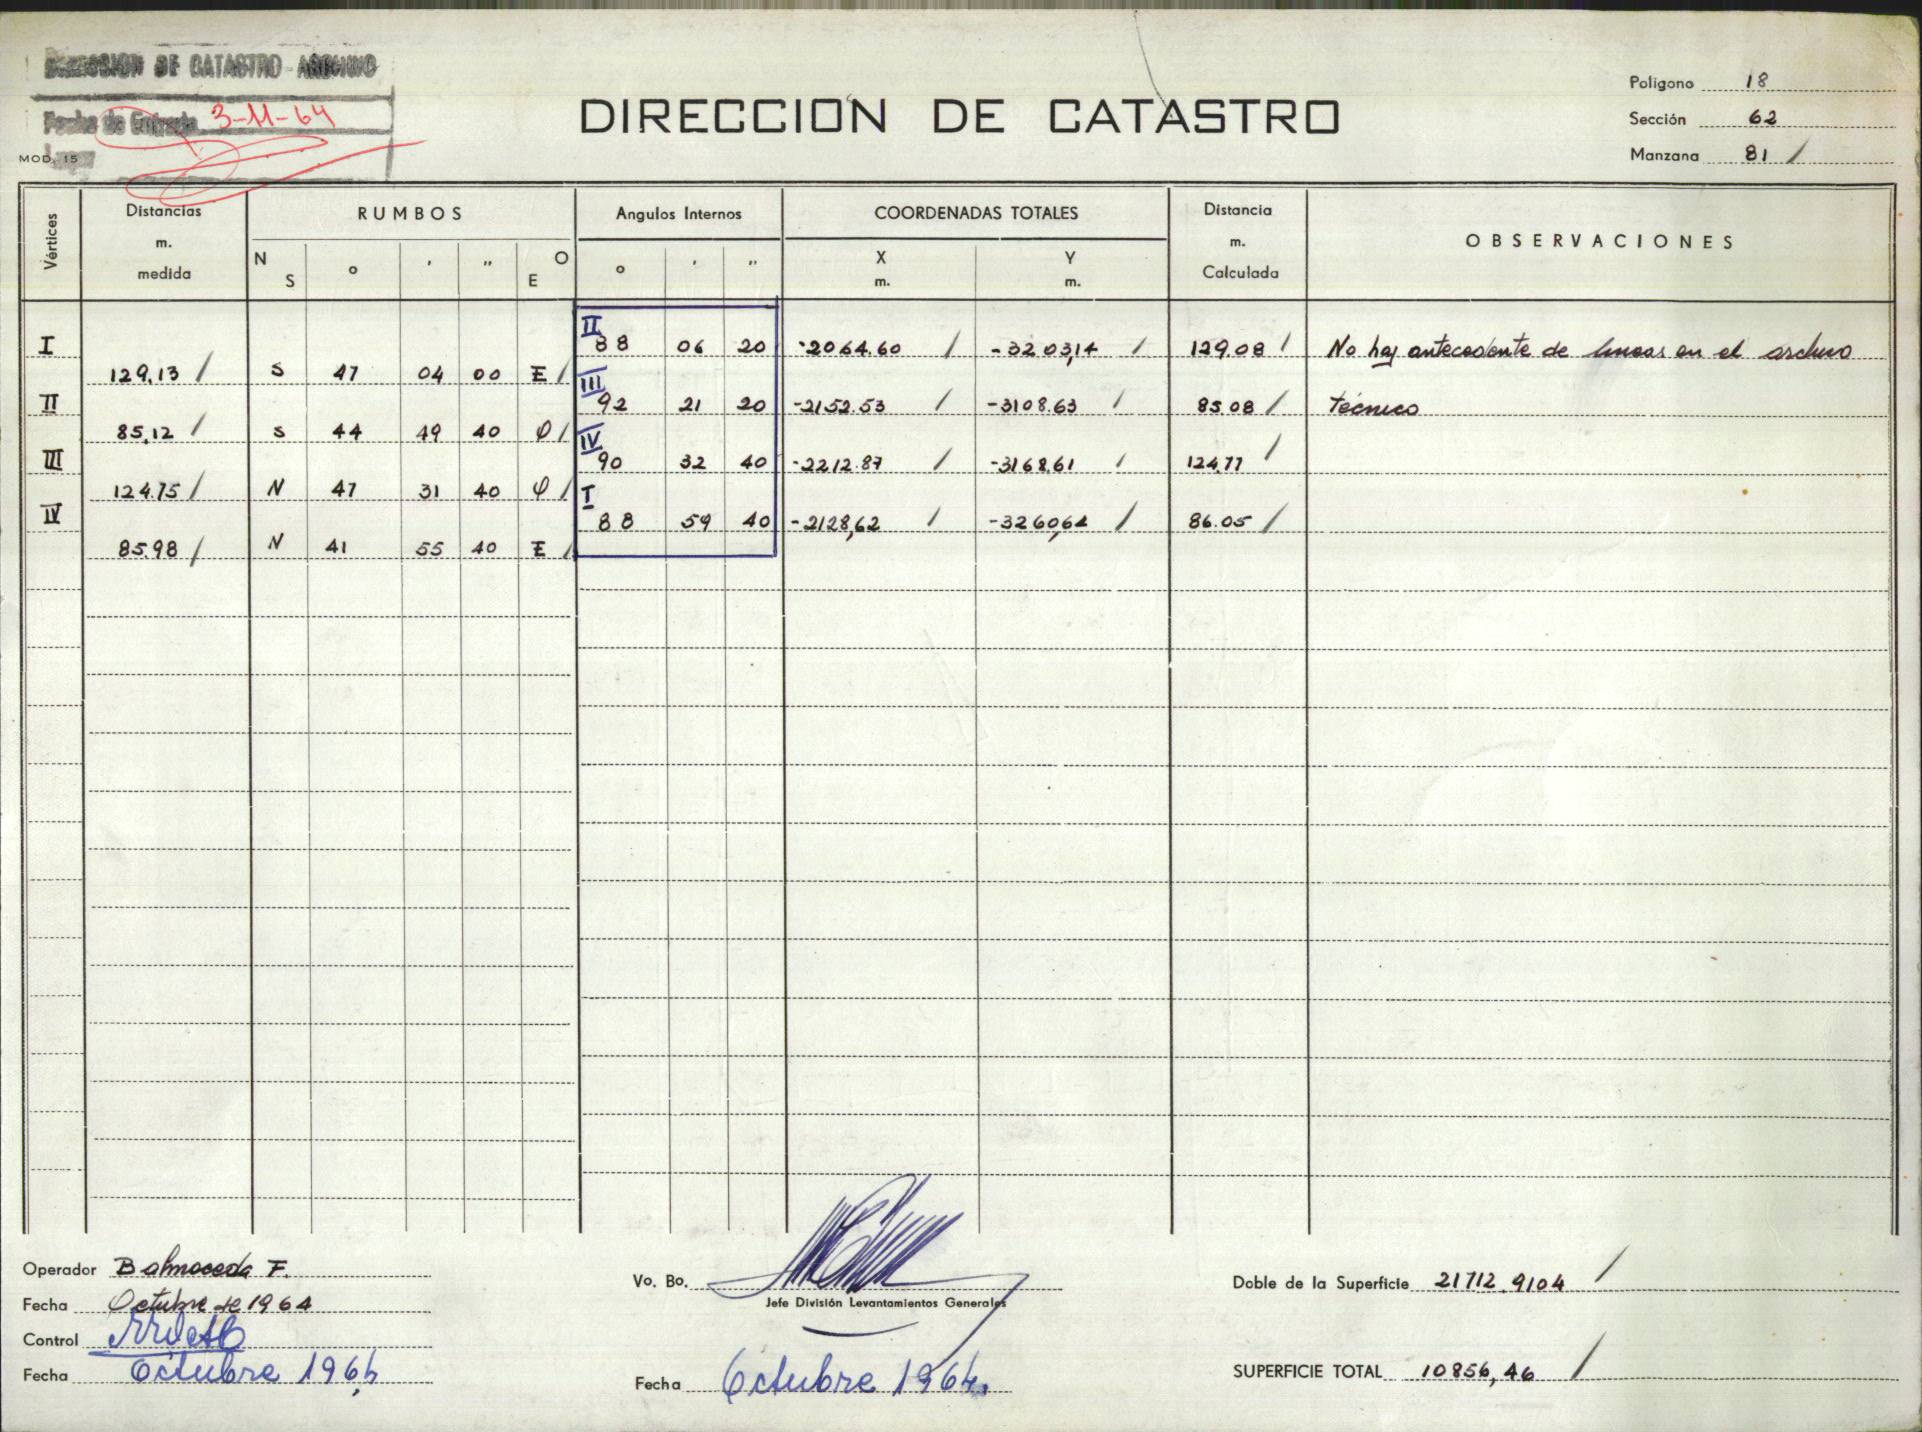 DIRECCION DE CATASTRO - ARCHIVO
Fecha de Entrada 3-11-64
MOD. 15
DIRECCION DE CATASTRO
Poligono 18
Sección 62
Manzana 81 /
Vértices
Distancias m. medida
RUMBOS
Angulos Internos
COORDENADAS TOTALES
Distancia m. Calculada
OBSERVACIONES
N S ° ' '' O E
° ' ''
X m. Y m.
I II 88 06 20 -2064.60 / -3203,14 / 129.08 / No hay antecedente de lineas en el archivo
129.13 / S 47 04 00 E /
II III 92 21 20 -2152.53 / -3108.63 / 85.08 / técnico
85,12 / S 44 49 40 O /
III IV 90 32 40 -2212.87 / -3168,61 / 124,77 /
124.75 / N 47 31 40 O /
IV I 88 59 40 -2128,62 / -3260,64 / 86.05 /
85.98 / N 41 55 40 E /
Operador Balmaceda F.
Fecha Octubre de 1964
Control
Fecha Octubre 1964
Vo. Bo.
Jefe División Levantamientos Generales
Fecha Octubre 1964.
Doble de la Superficie 21712,9104 /
SUPERFICIE TOTAL 10856,46 /